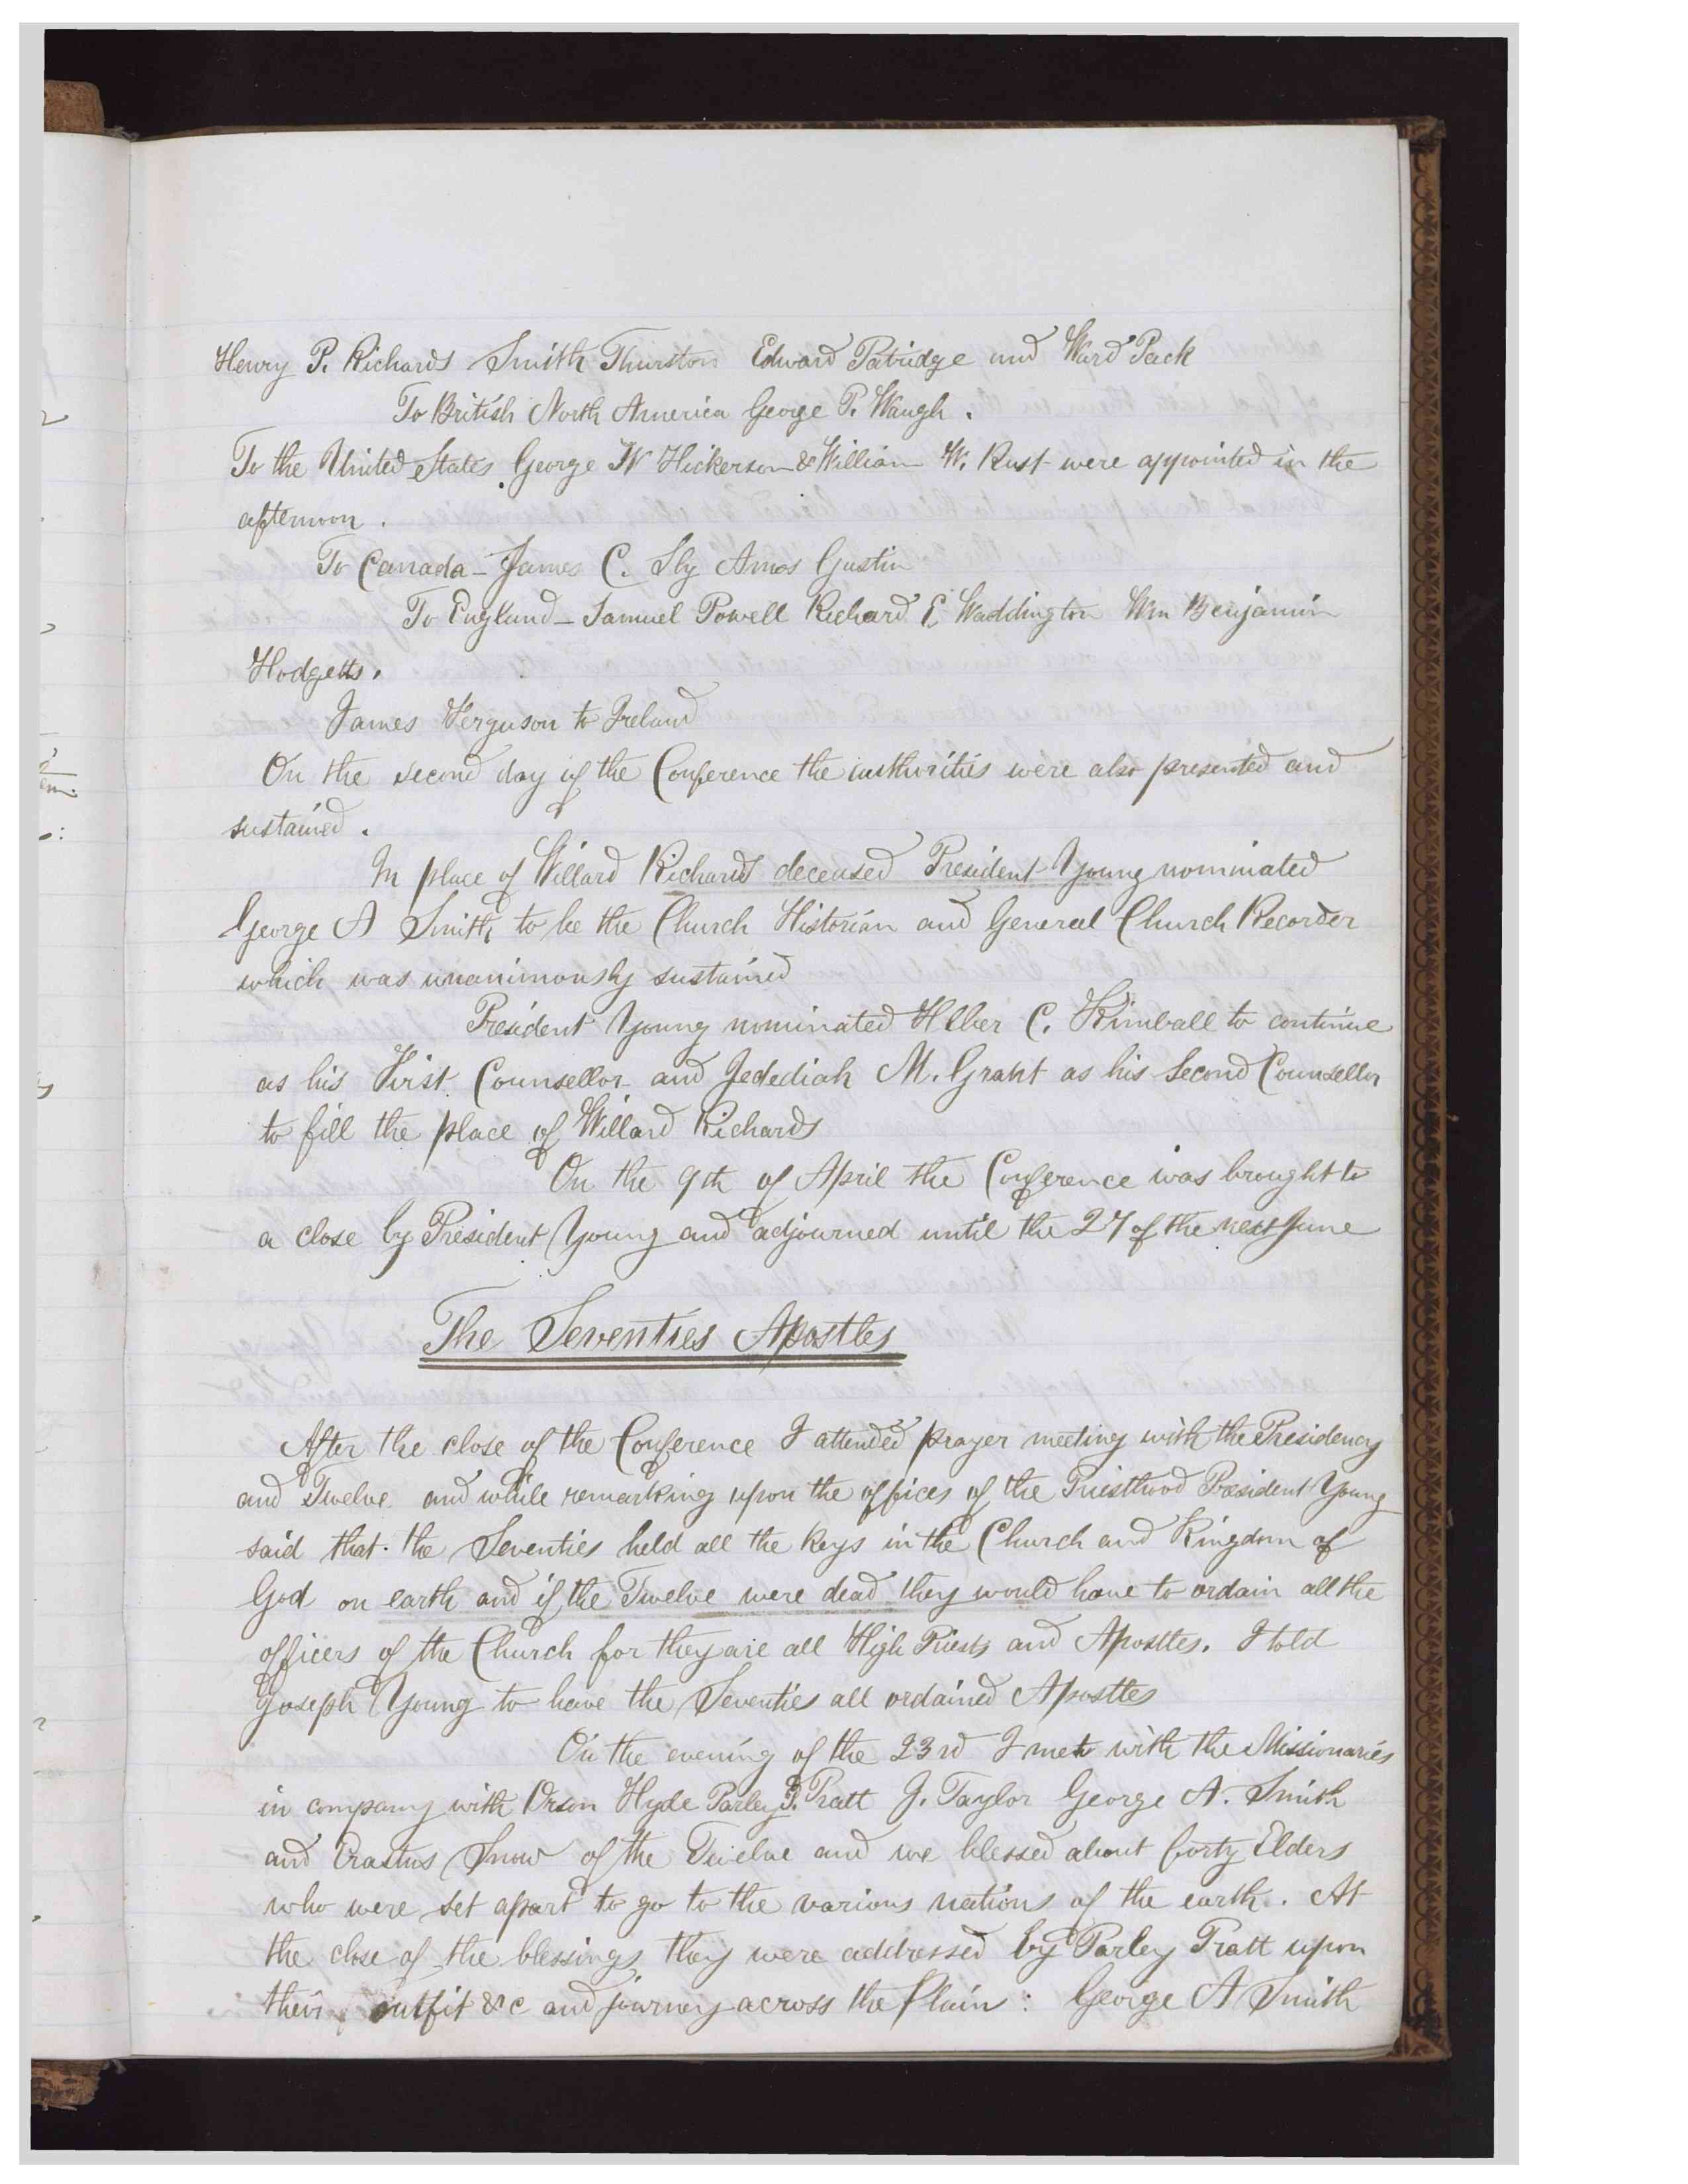 Henry P. Richards Smith Thurston Edward Patridge and Ward Pack
To British North America George P. Waugh.
To the United States George W Hickerson & William W. Rust were appointed in the
afternoon.
To Canada - James C. Sly Amos Gustin
To England - Samuel Powell Richard E Waddington Wm Benjamin
Hodgetts.
James Ferguson to Ireland
On the second day of the Conference the authorities were also presented and
sustained.
In place of Willard Richards deceased President Young nominated
George A Smith to be the Church Historian and General Church Recorder
which was unanimously sustained
President Young nominated Heber C. Kimball to continue
as his First Counsellor and Jedediah M. Grant as his Second Counsellor
to fill the place of Willard Richards
On the 9th of April the Conference was brought to
a close by President Young and adjourned until the 27 of the next June
The Seventies Apostles
After the close of the Conference I attended prayer meeting with the Presidency
and Twelve and while remarking upon the offices of the Priesthood President Young
said that the Seventies held all the keys in the Church and Kingdom of
God on earth and if the Twelve were dead they would have to ordain all the
officers of the Church for they are all High Priests and Apostles. I told
Joseph Young to have the Seventies all ordained Apostles
On the evening of the 23rd I met with the Missionaries
in company with Orson Hyde Parley P. Pratt J. Taylor George A. Smith
and Erastus Snow of the Twelve and we blessed about forty Elders
who were set apart to go to the various nations of the earth. At
the close of the blessings they were addressed by Parley Pratt upon
their outfit &c and journey across the Plain: George A Smith